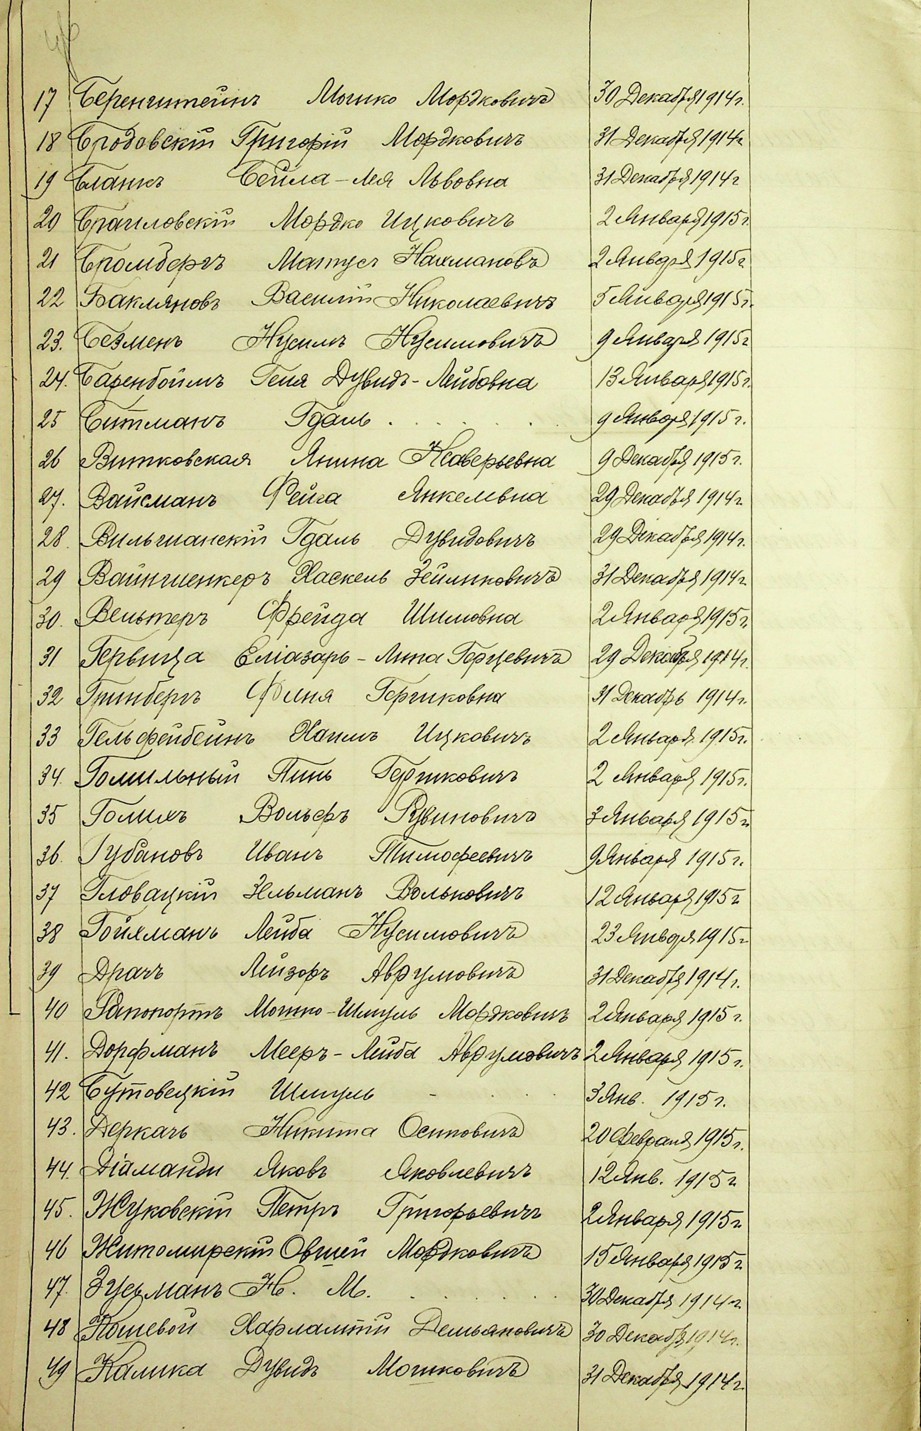 17 Беренштейнъ Мошко Мордковичъ 30 Декабря 1914 г.
18 Бродовскій Григорій Мордковичъ 31 Декабря 1914 г.
19 Бланкъ Бейла-Лея Львовна 31 Декабря 1914 г
20 Браиловскій Мордко Ицковичъ 2 Января 1915 г.
21 Бромбергъ Матусъ Нахмановъ 2 Января 1915 г
22 Бакляновъ Василій Николаевичъ 5 Января 1915 г.
23. Безменъ Нусимъ Нусимовичъ 9 Января 1915 г
24. Баренбоймъ Геня Дувидъ-Лейбовна 13 Января 1915 г.
25 Битманъ Гдаль . . . . . 9 Января 1915 г.
26 Витковская Янина Ксаверьевна 9 Декабря 1915 г.
27. Вайсманъ Фейга Янкелевна 29 Декабря 1914 г
28. Вильчианскій Гдаль Дувидовичъ 29 Декабря 1914 г.
29 Вайншенкеръ Хаскель Зейликовичъ 31 Декабря 1914 г.
30. Вельтеръ Фрейда Шимовна 2 Января 1915 г.
31 Гервица Еліазаръ- Герцевичъ 29 Декабря 1914 г.
32 Гринбергъ Фаня Гершковна 31 Декабрь 1914 г.
33 Гельфейбейнъ Хаимъ Ицковичъ 2 Января 1915 г.
34. Гомильный Пинь Гершковичъ 2 Января 1915 г.
35 Голихъ Вольфъ Рувиновичъ 3 Января 1915 г.
36. Губановъ Иванъ Тимофеевичъ 9 Января 1915 г.
37 Гловацкій Зельманъ Вольковичъ 12 Января 1915 г
38 Гойхманъ Лейба Нусимовичъ 23 Января 1915 г
39 Драчъ Лейзоръ Аврумовичъ 31 Декабря 1914 г.
40 Рапопортъ Мошко-Шмуль Мордковичъ 2 Января 1915 г.
41. Дорфманъ Мееръ-Лейба Аврумовичъ 2 Января 1915 г.
42 Бутовецкій Шмуль - . . . 3 Янв. 1915 г.
43. Деркачъ Никита Осиповичъ 20 Февраля 1915 г.
44. Діаманди Яковъ Яковлевичъ 12 Янв. 1915 г
45. Жуковскій Петръ Григорьевичъ 2 Января 1915 г
46 Житомирскій Овшей Мордковичъ 15 Января 1915 г
47. Зусьманъ Н. М. . . . . . 30 Декабря 1914 г
48 Кошевой Харлампій Демьяновичъ 30 Декабря 1914 г.
49 Калика Дувидъ Мошковичъ 31 Декабря 1914 г.